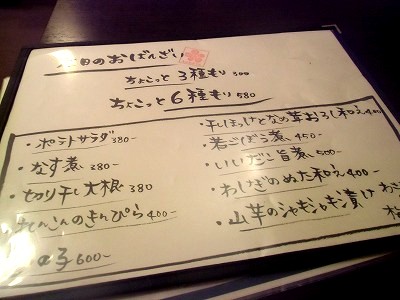 本日のおばんざい
ちょこっと3種もり 300
ちょこっと6種もり 580
・ポテトサラダ 380-
・なす煮 380-
・切り干し大根 380
れんこんのきんぴら 400-
600-
・干しほっけとなめ茸おろし和え 400
・若ごぼう煮 450-
・いいだこ旨煮 500-
・わけぎのぬた和え 400
・山芋のシャキシャキ漬け